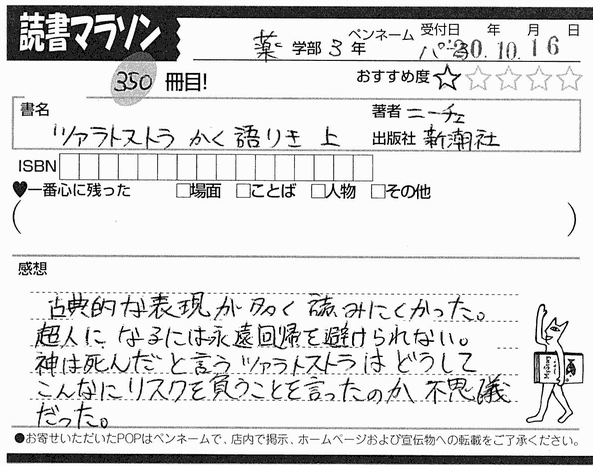 読書マラソン
薬 学部 3 年 ペンネーム 受付日 年 月 日
30.10.16
350 冊目!
おすすめ度 ★☆☆☆☆
書名
ツァラトストラ かく語りき 上
著者 ニーチェ
出版社 新潮社
ISBN
♥一番心に残った □場面 □ことば □人物 □その他
( )
感想
古典的な表現が多く読みにくかった。
超人になるには永遠回帰を避けられない。
神は死んだと言うツァラトストラはどうして
こんなにリスクを負うことを言ったのか不思議
だった。
●お寄せいただいたPOPはペンネームで、店内で掲示、ホームページおよび宣伝物への転載をご了承ください。